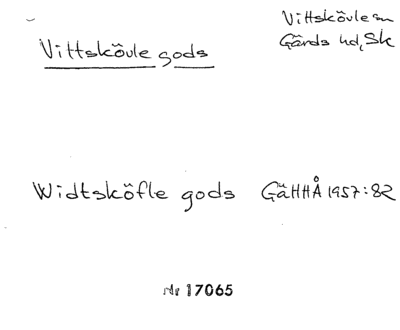 Vittskövle sn
Gärds hd, Sk
Vittskövle gods
Widtsköfle gods GäHHÅ 1957:82
Nr 17065